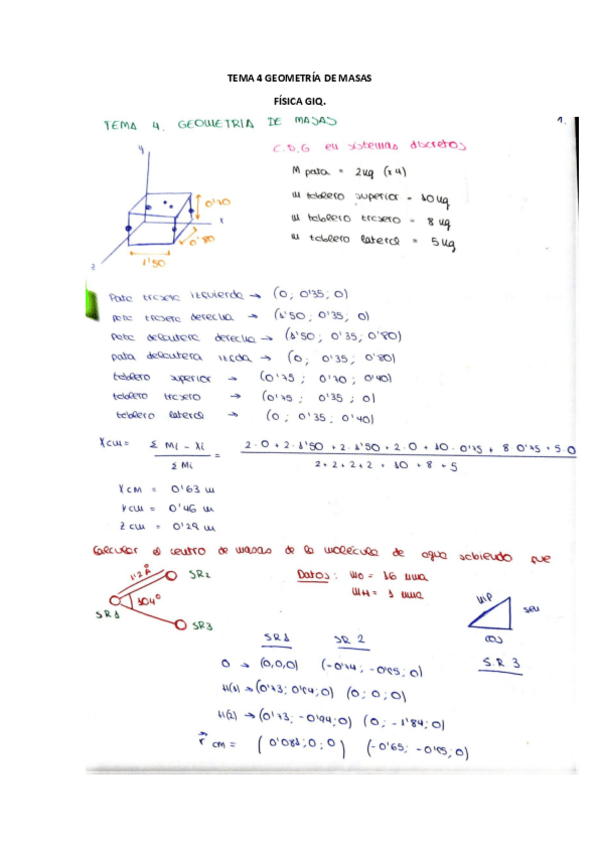 TEMA 4 GEOMETRÍA DE MASAS
FÍSICA GIQ.
TEMA 4. GEOMETRIA DE MASAS
1.
C.D.G en sistemas discretos
y
x
z
0'70
0'80
1'50
M pata = 2kg (x4)
m tablero superior = 10kg
m tablero trasero = 8 kg
m tablero lateral = 5kg
Pata trasera izquierda → (0; 0'35; 0)
pata trasera derecha → (1'50; 0'35; 0)
Pata delantera derecha → (1'50; 0'35; 0'80)
pata delantera izqda → (0; 0'35; 0'80)
tablero superior → (0'75; 0'70; 0'40)
tablero trasero → (0'75; 0'35; 0)
tablero lateral → (0; 0'35; 0'40)
Xcm = Σ Mi - Xi / Σ Mi = 2·0 + 2·1'50 + 2·1'50 + 2·0 + 10·0'75 + 8·0'75 + 5·0 / 2+2+2+2 + 10 + 8 + 5
Xcm = 0'63 m
Ycm = 0'46 m
Zcm = 0'29 m
Calcular el centro de masas de la molécula de agua sabiendo que
1'2 Å
SR2
104°
SR1
SR3
Datos: mO = 16 uma
mH = 1 uma
hip
sen
cos
SR1 SR2 S.R 3
O → (0,0,0) (-0'74; -0'95; 0)
H(1) → (0'73; 0'94; 0) (0; 0; 0)
H(2) → (0'73; -0'94; 0) (0; -1'84; 0)
r cm = (0'081; 0; 0) (-0'65; -0'95; 0)